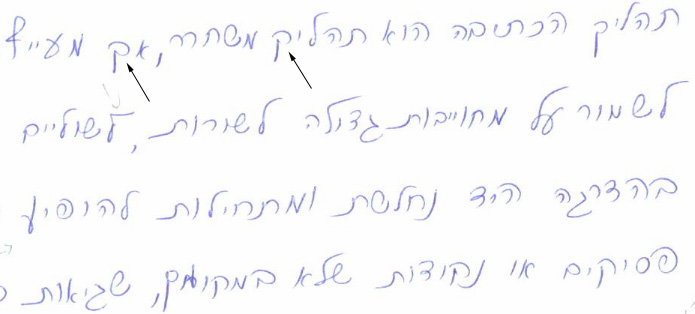 תהליך הכתיבה הוא תהליק משחרר, אק מעייף
לשמור על מחוייבות גדולה לשורות, לשוליים
בהדרגה היד נחלשת ומתחילות להופיע
פסיקים או נקודות שלא במקומם, שגיאות